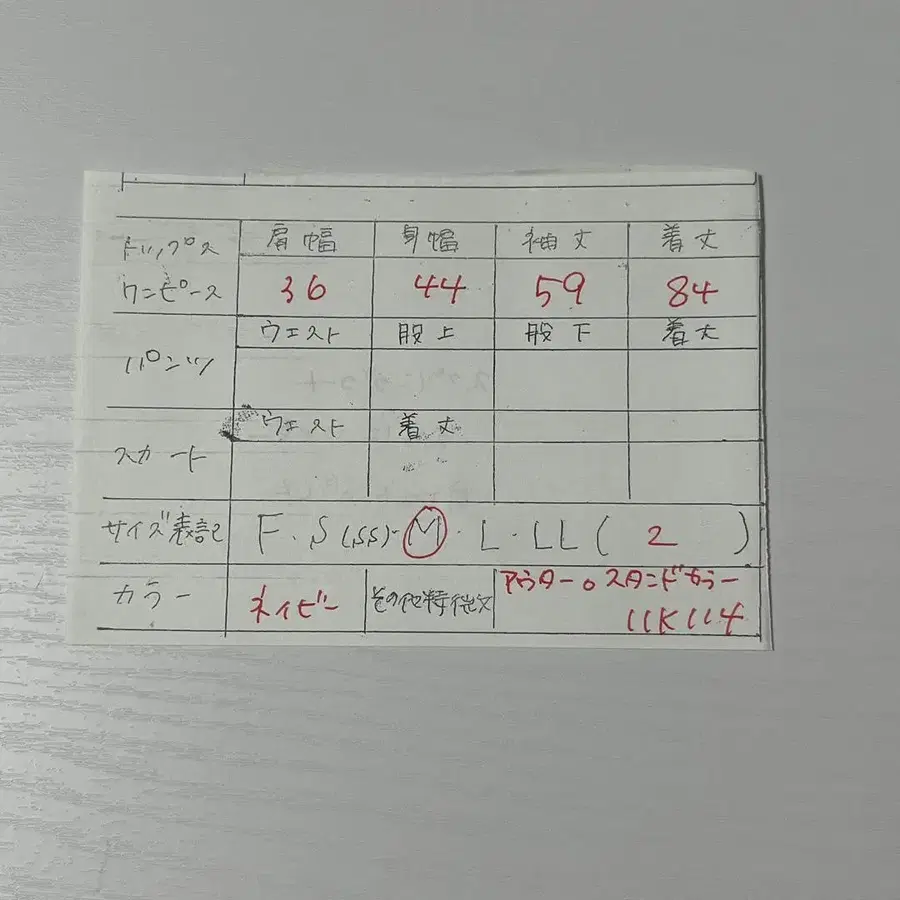 トップス 肩幅 身幅 袖丈 着丈
ワンピース 36 44 59 84
パンツ ウエスト 股上 股下 着丈
スカート ウエスト 着丈
サイズ表記 F・S(SS)・M・L・LL( 2 )
カラー ネイビー その他特徴 アウター。スタンドカラー
11K114